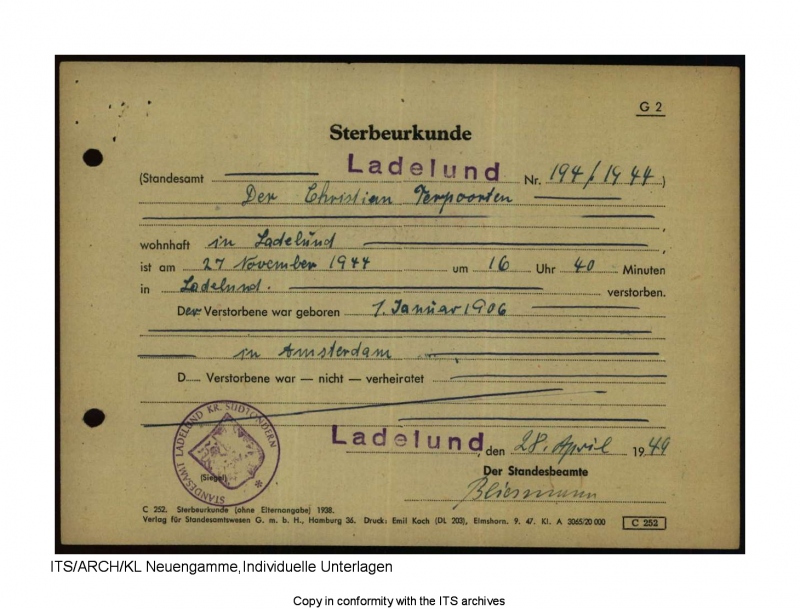 G 2
Sterbeurkunde
(Standesamt Ladelund Nr. 194/1944)
Der Christian Terpoorten
wohnhaft in Ladelund
ist am 27 November 1944 um 16 Uhr 40 Minuten
in Ladelund. verstorben.
Der Verstorbene war geboren 1. Januar 1906
in Amsterdam
D..... Verstorbene war — nicht — verheiratet
STANDESAMT LADELUND KR. SÜDTONDERN
(Siegel)
Ladelund, den 28. April 1949
Der Standesbeamte
Bliesmann
C 252. Sterbeurkunde (ohne Elternangabe) 1938.
Verlag für Standesamtswesen G. m. b. H., Hamburg 36. Druck: Emil Koch (DL 203), Elmshorn. 9. 47. Kl. A 3065/20 000 C 252
ITS/ARCH/KL Neuengamme, Individuelle Unterlagen
Copy in conformity with the ITS archives